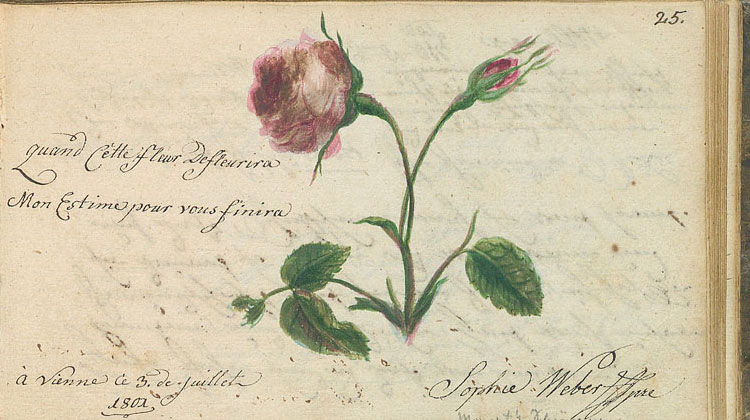 25.
quand Cette fleur Defleurira
Mon Estime pour vous finira
à Vienne ce 3. de juillet
1801
Sophie Weber